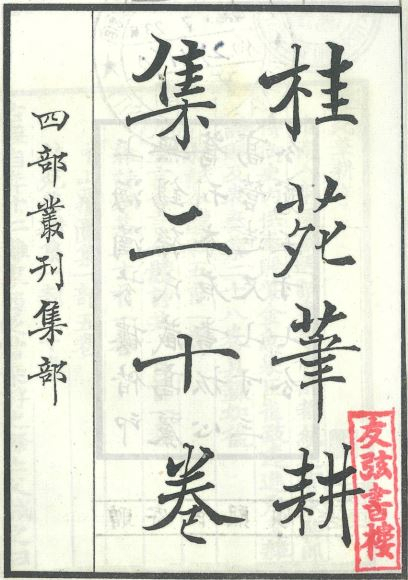 桂苑筆耕
集二十卷
四部叢刊集部
友弦書樓